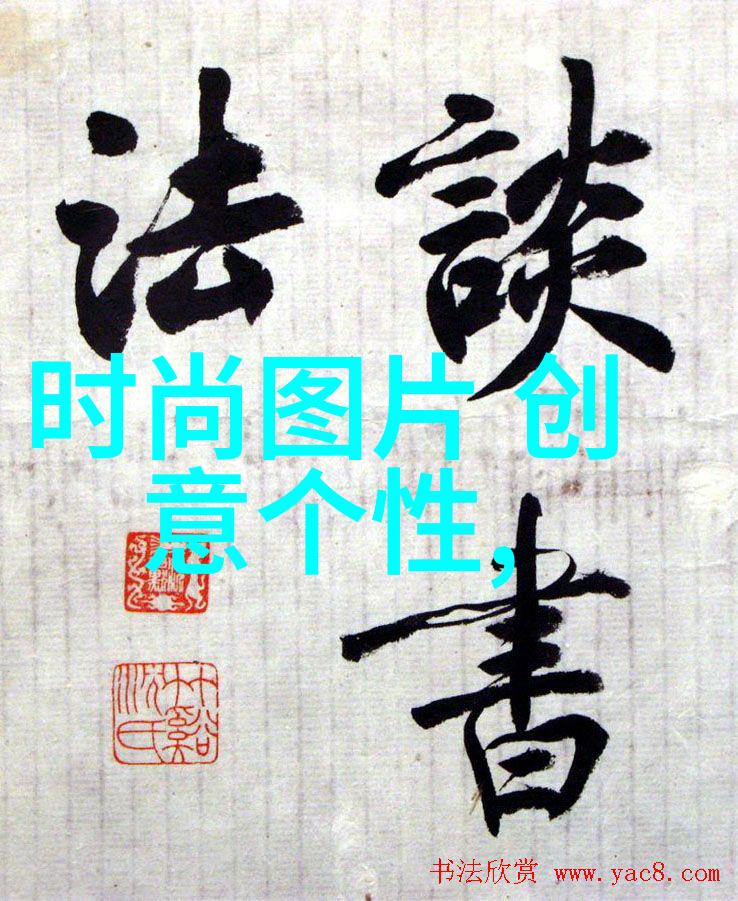 談書
法
时尚图片 创
意个性,
书法欣赏 www.yac8.com